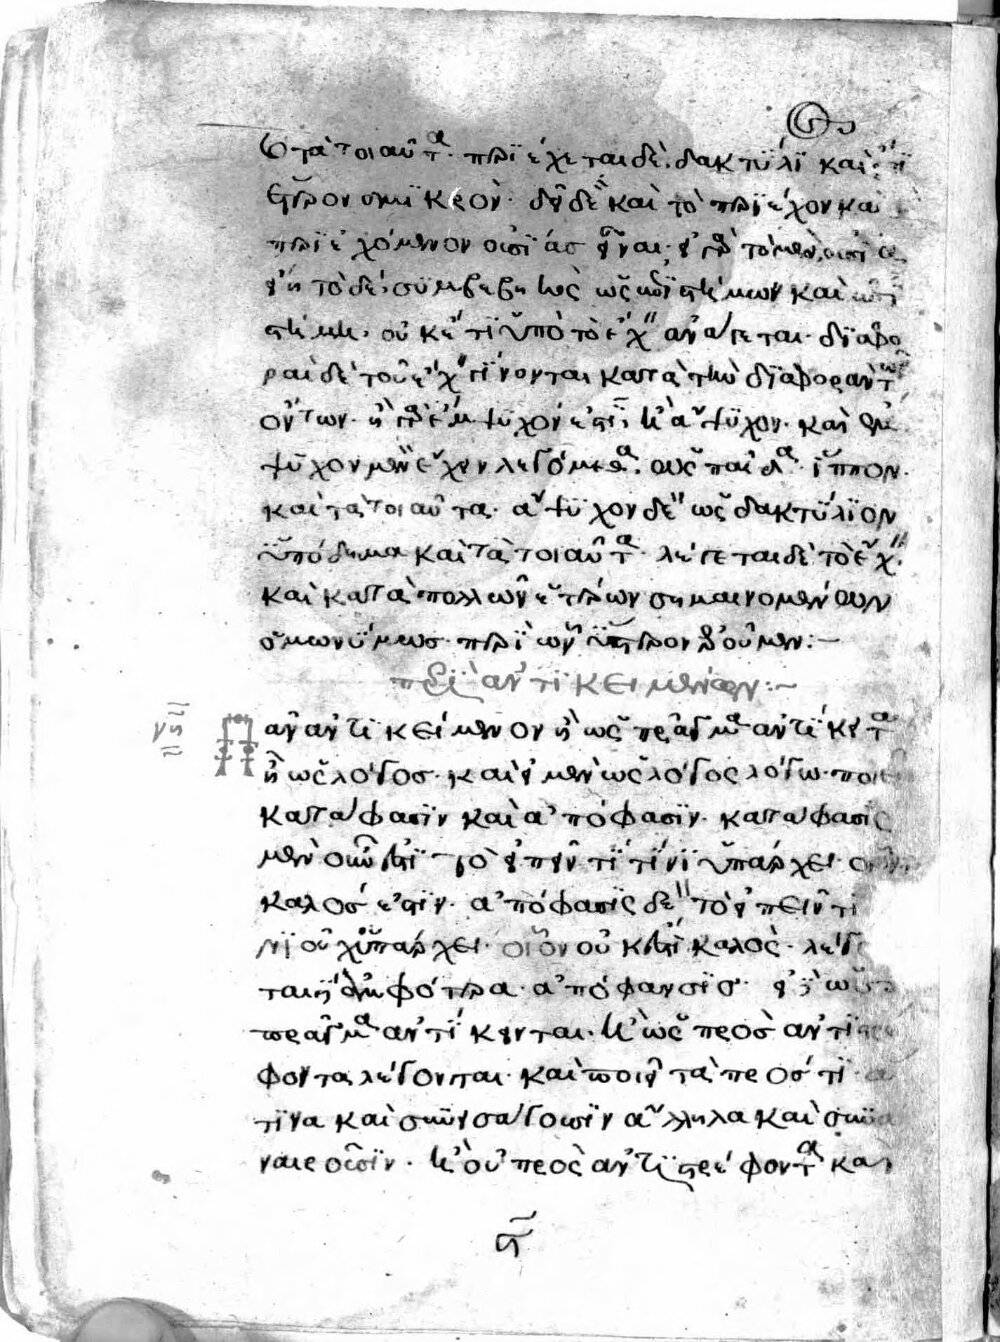 τὰ τοιαῦτα· περιέχεται δὲ δακτύλι καὶ
ἕτερον σμικρόν· δεῖ δὲ καὶ τὸ περιέχον καὶ
περιεχόμενον οὐσίας εἶναι· εἰ γὰρ τὸ μὲν οὐσία
εἴη τὸ δὲ συμβεβηκὸς ὡς ἐπιστήμων καὶ ἐπι
στήμη, οὐκέτι ὑπὸ τὸ ἔχειν ἀνάγεται· διαφο
ραὶ δὲ τοῦ ἔχειν γίνονται κατὰ τὴν διαφορὰν τῶν
ὄντων· ἢ γὰρ ἔμψυχόν ἐστιν ἢ ἄψυχον· καὶ ἔμ
ψυχον μὲν ἔχειν λεγόμεθα· ὡς παῖδα ἵππον·
καὶ τὰ τοιαῦτα· ἄψυχον δὲ ὡς δακτύλιον
ὑπόδημα καὶ τὰ τοιαῦτα· λέγεται δὲ τὸ ἔχειν
καὶ κατὰ πολλῶν ἑτέρων σημαινομένων
ὁμωνύμως· περὶ ὧν ὕστερον ἐροῦμεν:–
περὶ ἀντικειμένων:–
Πᾶν ἀντικείμενον ἢ ὡς πράγματα ἀντίκειται
ἢ ὡς λόγος· καὶ εἰ μὲν ὡς λόγος λόγω· ποιεῖ
κατάφασιν καὶ ἀπόφασιν· κατάφασις
μὲν οὖν ἐστὶ τὸ εἰπεῖν τί τίνι ὑπάρχει·
καλός ἐστιν· ἀπόφασις δὲ τὸ εἰπεῖν τί
νι οὐχ ὑπάρχει· οἷον οὐκ ἔστι καλός· λέγε
ται ἢ ἀμφότερα· ἀπόφανσις· εἰ δὲ ὡς
πράγματα ἀντίκεινται· ἢ ὡς πρὸς ἀντιστρέ
φοντα λέγονται· καὶ ποιεῖ τὰ πρός τι· ἅ
τινα καὶ συνεισάγουσιν ἄλληλα καὶ συνα
ναιροῦσιν· ἢ οὐ πρὸς ἀντιστρέφοντα καὶ